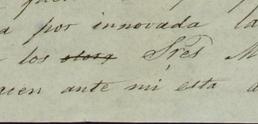 a por innovada la
los otorg Sres M
acen ante mi esta a